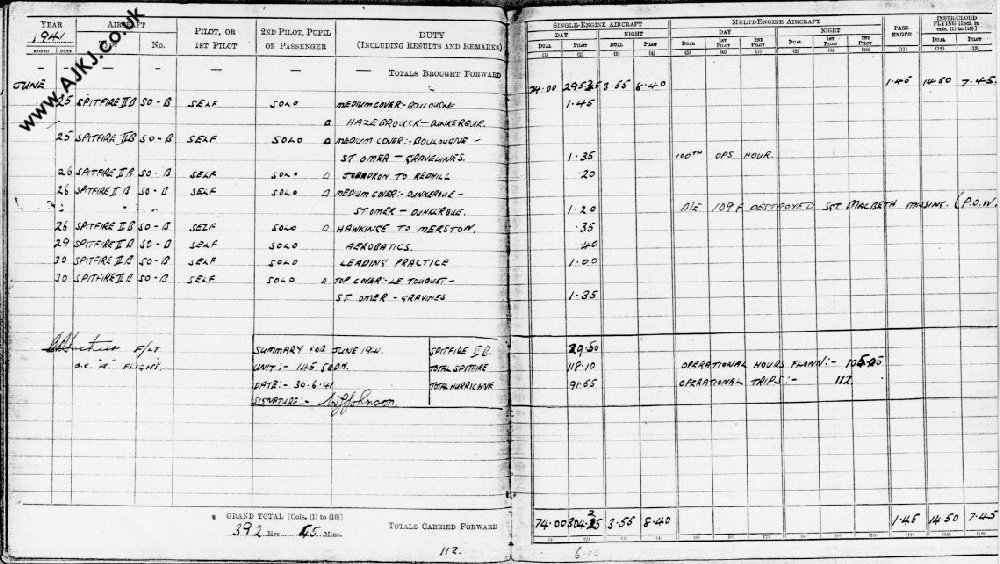 YEAR AIRCRAFT PILOT, OR 1ST PILOT 2ND PILOT, PUPIL OR PASSENGER DUTY (INCLUDING RESULTS AND REMARKS) SINGLE-ENGINE AIRCRAFT MULTI-ENGINE AIRCRAFT PASSENGER INSTR/CLOUD FLYING [Incl. in cols. (1) to (10)]
1941 DAY NIGHT DAY NIGHT
MONTH DATE No. DUAL PILOT DUAL PILOT DUAL 1ST PILOT 2ND PILOT DUAL 1ST PILOT 2ND PILOT DUAL PILOT
(1) (2) (3) (4) (5) (6) (7) (8) (9) (10) (11) (12) (13)
— — — — — TOTALS BROUGHT FORWARD
JUNE 74.00 3.55 8.40 1.45 14.50 7.45
25 SPITFIRE II B SO-B SELF SOLO MEDIUM COVER:- BOULOUGNE 1.45
HAZEBROUCK — DUNKERQUE.
25 SPITFIRE II B SO-B SELF SOLO MEDIUM COVER:- BOULOUGNE —
ST OMER — GRAVELINES. 1.35 100TH OPS HOUR.
26 SPITFIRE II B SO-B SELF SOLO TO REDHILL 20
26 SPITFIRE II B SO-B SELF SOLO MEDIUM COVER:- DUNKERQUE —
" " " ST OMER — DUNKERQUE. 1.20 ME 109F DESTROYED SGT MACBETH MISSING. (P.O.W.
26 SPITFIRE II B SO-B SELF SOLO HAWKINGE TO MERSTON. .35
29 SPITFIRE II B SO-B SELF SOLO AEROBATICS. 40
30 SPITFIRE II B SO-B SELF SOLO LEADING PRACTICE 1.00
30 SPITFIRE II B SO-B SELF SOLO TOP COVER:- LE TOUQUET —
ST. OMER — GRAVINES 1.35
F/LT SUMMARY FOR JUNE 1941. SPITFIRE II B. 29.50
O.C. "A" FLIGHT. UNIT:- 145. SQDN. TOTAL SPITFIRE 118.10 OPERATIONAL HOURS FLOWN:-
DATE:- 30.6.41 TOTAL HURRICANE 91.55 OPERATIONAL TRIPS:- 112.
SIGNATURE:- Johnson
GRAND TOTAL [Cols. (1) to (10)]
392 Hrs. 45 Mins. TOTALS CARRIED FORWARD 74.00 3.55 8.40 1.45 14.50 7.45
(1) (2) (3) (4) (5) (6) (7) (8) (9) (10) (11) (12) (13)
112.
www.AJKJ.co.uk